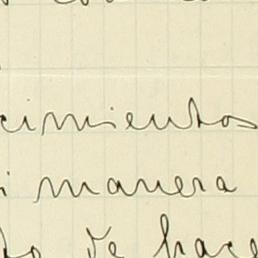 cimientos
i manera
to de hace